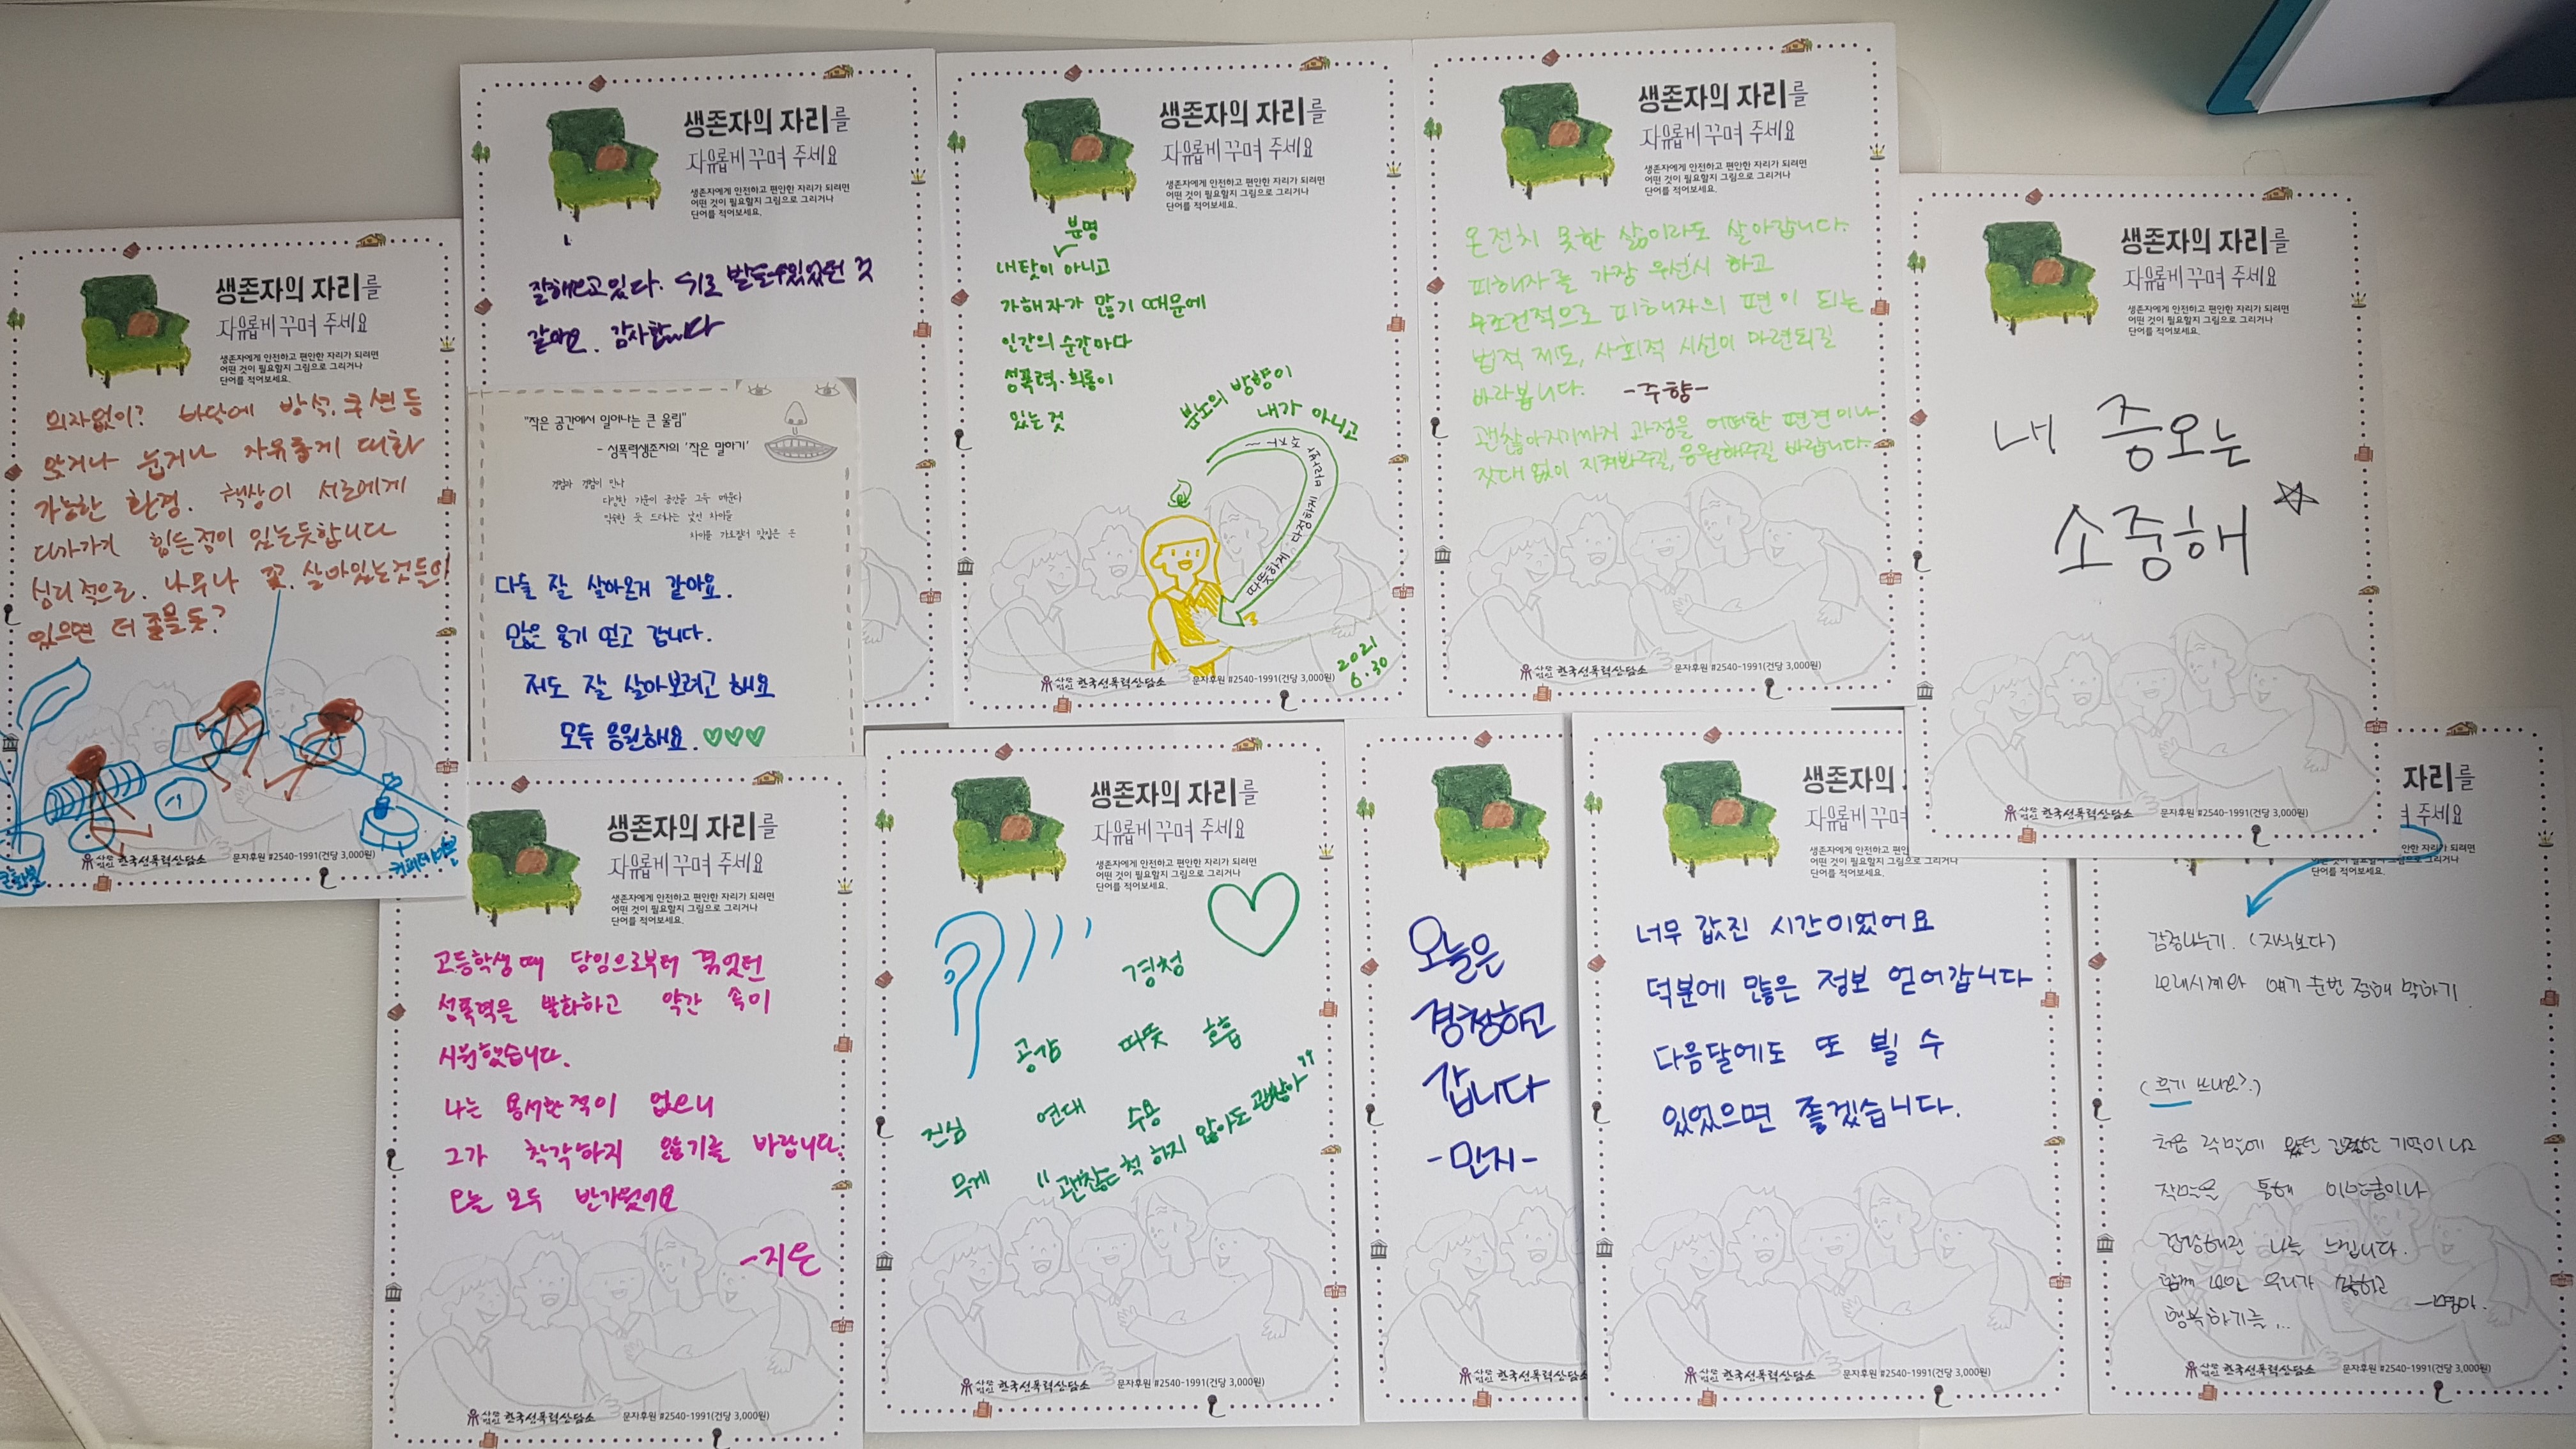 생존자의 자리를
자유롭게 꾸며 주세요
생존자에게 안전하고 편안한 자리가 되려면
어떤 것이 필요할지 그림으로 그리거나
단어를 적어보세요.
의자없이? 바닥에 방석, 쿠션등
앉거나 눕거나 자유롭게 대화
가능한 환경. 책상이 서로에게
다가가기 힘든점이 있는듯합니다
심리적으로. 나무나 꽃. 살아있는것들이
있으면 더 좋을듯?
커피테이블
한국성폭력상담소
문자후원 #2540-1991(건당 3,000원)
생존자의 자리를
자유롭게 꾸며 주세요
생존자에게 안전하고 편안한 자리가 되려면
어떤 것이 필요할지 그림으로 그리거나
단어를 적어보세요.
잘해오고있다. 위로 받을수있었던 것
같아요. 감사합니다
"작은 공간에서 일어나는 큰 울림"
- 성폭력생존자의 '작은 말하기'
경험과 경험이 만나
다양한 기운이 공간을 그득 메운다
익숙한 듯 드러나는 낯선 차이들
차이를 가로질러 맞잡은 손
다들 잘 살아온거 같아요.
많은 용기 얻고 갑니다.
저도 잘 살아보려고 해요
모두 응원해요. ♡♡♡
생존자의 자리를
자유롭게 꾸며 주세요
생존자에게 안전하고 편안한 자리가 되려면
어떤 것이 필요할지 그림으로 그리거나
단어를 적어보세요.
분명
내탓이 아니고
가해자가 많기 때문에
인간의 순간마다
성폭력·희롱이
있는 것
분노의 방향이
내가 아니고
따뜻하게 다정하게
2021
6.30
한국성폭력상담소
문자후원 #2540-1991(건당 3,000원)
생존자의 자리를
자유롭게 꾸며 주세요
생존자에게 안전하고 편안한 자리가 되려면
어떤 것이 필요할지 그림으로 그리거나
단어를 적어보세요.
온전치 못한 삶이라도 살아갑니다.
피해자를 가장 우선시 하고
무조건적으로 피해자의 편이 되는
법적 제도, 사회적 시선이 마련되길
바라봅니다. -주향-
괜찮아지기까지 과정을 어떠한 편견이나
잣대 없이 지켜봐주길, 응원해주길 바랍니다.
한국성폭력상담소
문자후원 #2540-1991(건당 3,000원)
생존자의 자리를
자유롭게 꾸며 주세요
생존자에게 안전하고 편안한 자리가 되려면
어떤 것이 필요할지 그림으로 그리거나
단어를 적어보세요.
내 증오는
소중해 ☆
한국성폭력상담소
문자후원 #2540-1991(건당 3,000원)
생존자의 자리를
자유롭게 꾸며 주세요
생존자에게 안전하고 편안한 자리가 되려면
어떤 것이 필요할지 그림으로 그리거나
단어를 적어보세요.
고등학생 때 담임으로부터 겪었던
성폭력을 발화하고 약간 속이
시원했습니다.
나는 용서한적이 없으니
그가 착각하지 않기를 바랍니다.
오늘 모두 반가웠어요
-지은
한국성폭력상담소
문자후원 #2540-1991(건당 3,000원)
생존자의 자리를
자유롭게 꾸며 주세요
생존자에게 안전하고 편안한 자리가 되려면
어떤 것이 필요할지 그림으로 그리거나
단어를 적어보세요.
경청
공감 따뜻 호흡
진심 연대 수용
무게 "괜찮은 척 하지 않아도 괜찮아"
한국성폭력상담소
문자후원 #2540-1991(건당 3,000원)
오늘은
경청하고
갑니다
-민지-
한국성폭력상담소
생존자의
자유롭게 꾸며
생존자에게 안전하고 편안
어떤 것이 필요할지 그림으로 그리거나
단어를 적어보세요.
너무 값진 시간이었어요
덕분에 많은 정보 얻어갑니다
다음달에도 또 뵐 수
있었으면 좋겠습니다.
한국성폭력상담소
문자후원 #2540-1991(건당 3,000원)
자리를
주세요
안한 자리가 되려면
그림으로 그리거나
감정나누기. (지식보다)
모래시계와 얘기 순번 정해 말하기.
(후기 쓰나요?)
처음 작말에 왔던 긴장한 기억이 나요
작말을 통해
건강해진 나를 느낍니다.
함께 모인 우리가
행복하기를...
한국성폭력상담소
문자후원 #2540-1991(건당 3,000원)